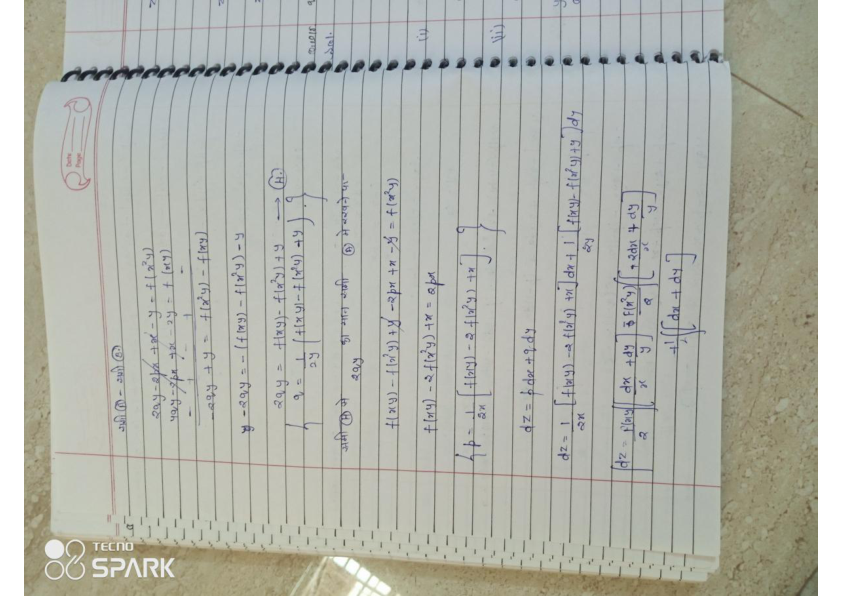 Date
Page
2qy - 2px + x - y = f(x²y)
4qy - 2px + x - 2y = f(xy)
- + - + -
-2qy + y = f(x²y) - f(xy)
-2qy = -(f(xy) - f(x²y) - y
2qy = f(xy) - f(x²y) + y → (A)
{ q = 1/2y (f(xy) - f(x²y) + y) }
समी (A) से 2qy का मान समी (B) में रखने पर-
f(xy) - f(x²y) + y - 2px + x - y = f(x²y)
f(xy) - 2f(x²y) + x = 2px
{ p = 1/2x [f(xy) - 2f(x²y) + x] }
dz = p dx + q dy
dz = 1/2x [f(xy) - 2f(x²y) + x] dx + 1/2y [f(xy) - f(x²y) + y] dy
dz = f(xy)/2 [dx/x + dy/y] - f(x²y)/2 [2dx/x + dy/y]
+ 1/2 [dx + dy]
(i)
(ii)
TECNO
SPARK